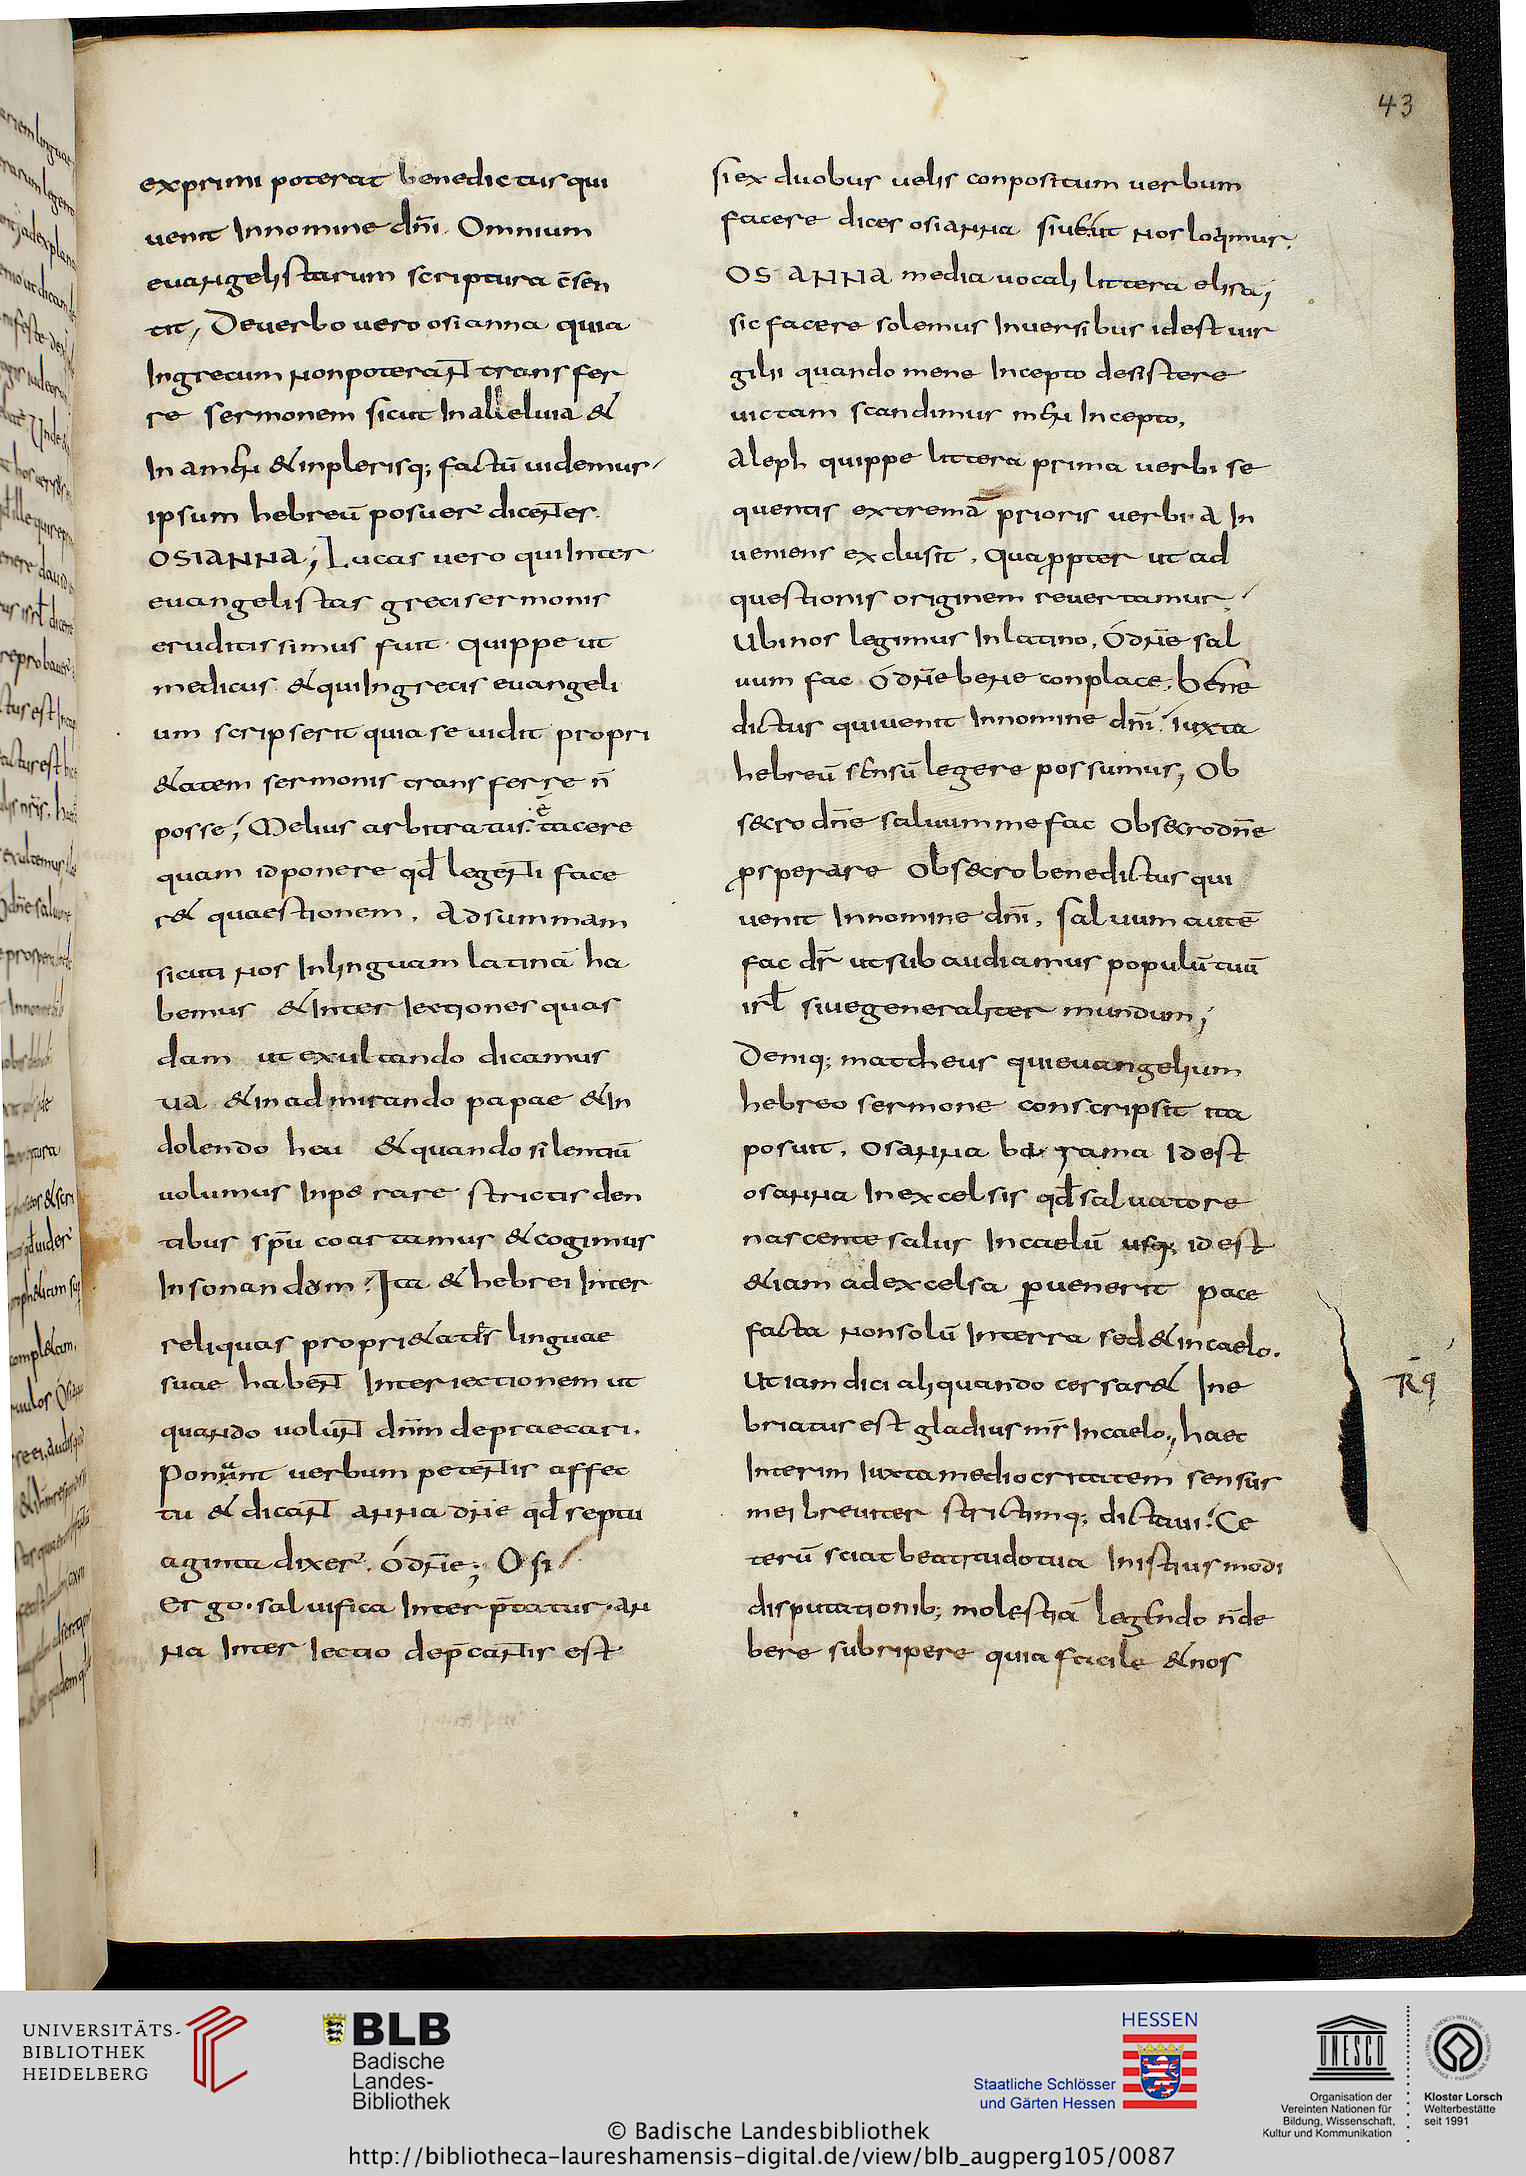 43
exprimi poterat benedictus qui
uenit Innomine dnī. Omnium
euangelistarum scriptura c̄sen
tit, Deuerbo uero osianna quia
Ingrecum nonpoterant̄ transfer
re sermonem sicut Inalleluia &
In am̄ & inplerisq; factū uidemus
ipsum hebreū posuer̄ dicent̄es.
OSIANNA; Lucas uero quiInter
euangelistas greci sermonis
eruditissimus fuit quippe ut
medicus & quiIngrecis euangeli
um scripserit quia se uidit propri
&atem sermonis transferre n̄
posse; Melius arbitratus ē tacere
quam idponere qd̄ legenti face
r& quaestionem. Adsummam
sicuti nos Inlinguam latinā ha
bemus & Inter Iectiones quas
dam ut exultando dicamus
ua & inadmirando papae & In
dolendo heu & quando silentiū
uolumus Inperare strictis den
tibus spū coartamus & cogimus
Insonandam. Ita & hebrei Inter
reliquas propri&at̄s linguae
suae habent̄ Interiectionem ut
quando uolunt̄ dn̄m depraecari.
Ponant uerbum petentis affec
tu & dicant̄ anna dn̄e qd̄ septu
aginta dixer̄. ó dn̄e; Osi
ergo saluifica Interp̄tatur. an
na Inter Iectio dep̄cantis est
si ex duobus uelis conpositum uerbum
facere dices osianna siue ut nos loqimur.
OS ANNA media uocali littera elisa;
sic facere solemus Inuersibus idest uir
gilii quando mene Incepto desistere
uictam scandimur Incepto,
Aleph quippe littera prima uerbi se
quentis extremā prioris uerbi A In
ueniens exclusit. Quapropter ut ad
questionis originem reuertamur
Ubi nos legimus Inlatino, ó dn̄e sal
uum fac ó dn̄e bene conplace. bene
dictus quiuenit Innomine dnī. iuxta
hebreū sensū legere possumus; Ob
secro dn̄e saluummefac Obsecrodn̄e
prsperare Obsecro benedictus qui
uenit Innomine dnī, saluum autē
fac dr̄ ut subaudiamus populū tuū
irl̄ siuegeneraliter mundum;
Deniq; mattheus quieuangelium
hebreo sermone conscripsit ita
posuit, osanna ba rama Idest
osanna Inexcelsis qd̄ saluatore
nascente salus Incaelū usq; idest
&iam adexcelsa peruenerit pace
facta nonsolū Interra sed & incaelo.
Ut iam dici aliquando cessar& Ine
briatus est gladius mr̄ Incaelo., haec
Interim Iuxtamediocritatem sensus
mei breuiter strictimq; dictaui. Ce
terū sciat beatitudotua Inistiusmodi
disputationib; molestiā legendo n̄de
bere subripere quia facile & nos
UNIVERSITÄTS-
BIBLIOTHEK
HEIDELBERG
BLB
Badische
Landes-
Bibliothek
HESSEN
Staatliche Schlösser
und Gärten Hessen
UNESCO
Organisation der
Vereinten Nationen für
Bildung, Wissenschaft,
Kultur und Kommunikation
Kloster Lorsch
Welterbestätte
seit 1991
© Badische Landesbibliothek
http://bibliotheca-laureshamensis-digital.de/view/blb_augperg105/0087